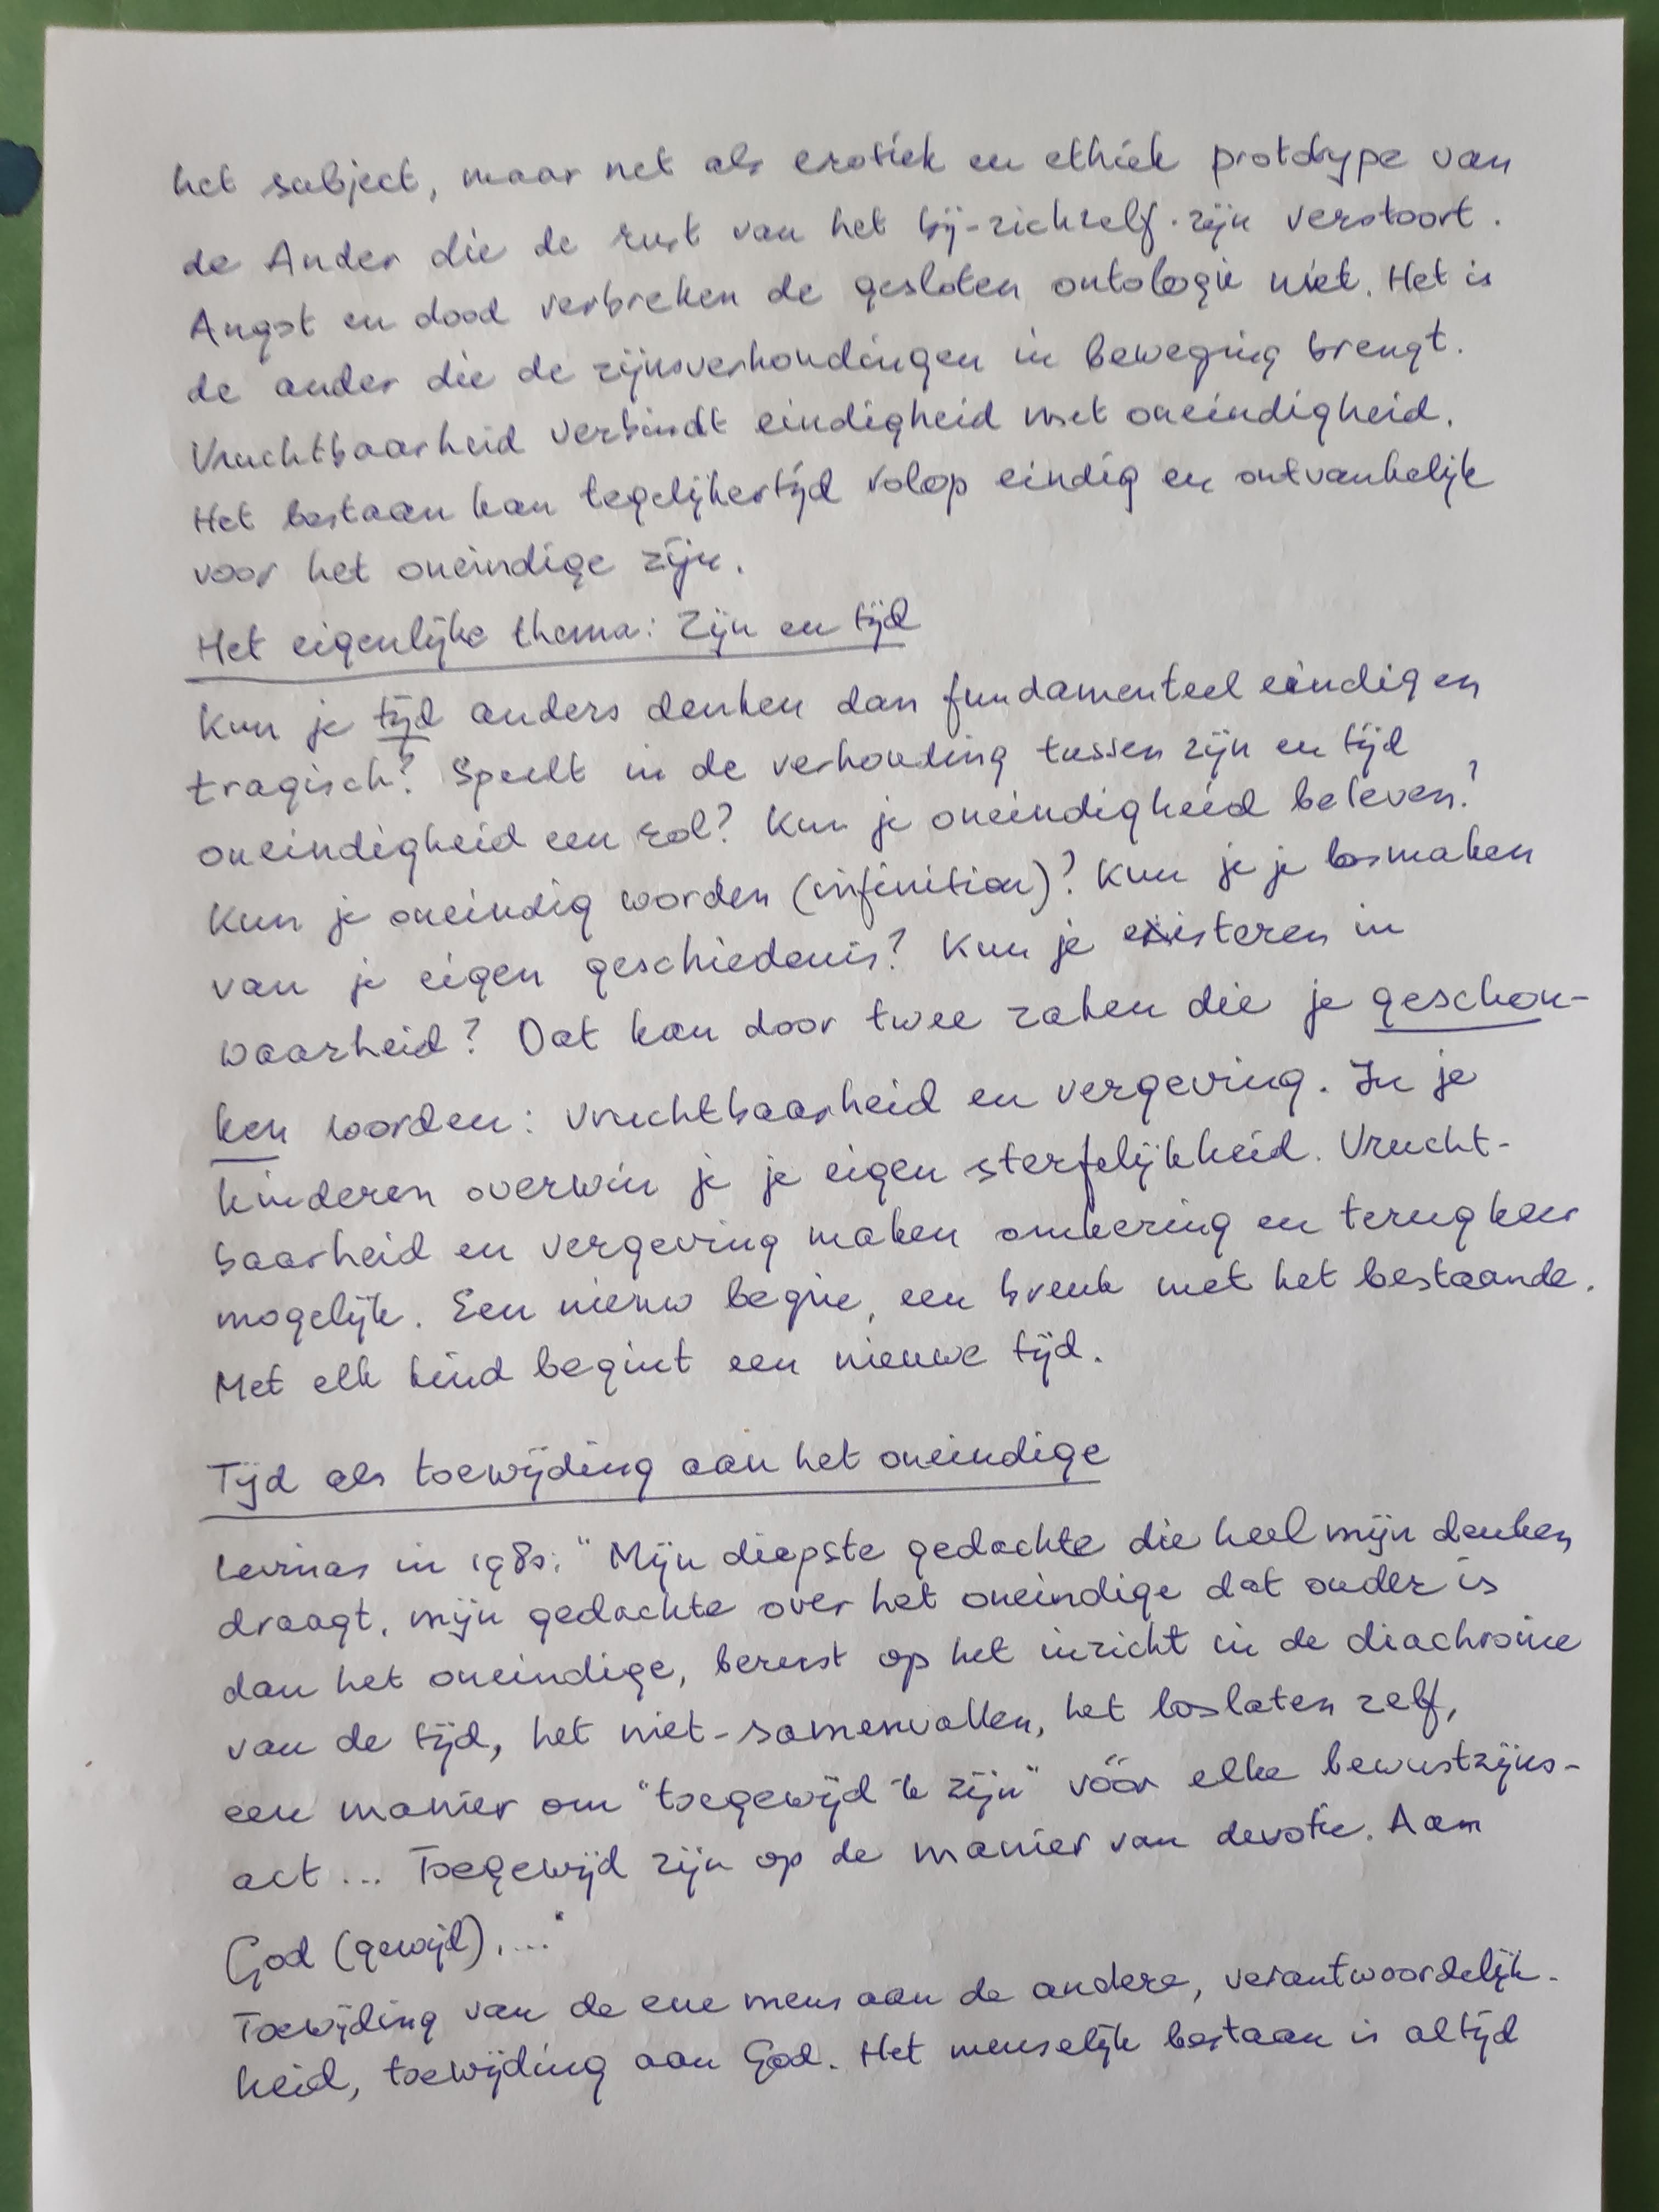 het subject, maar net als erotiek en ethiek prototype van
de Ander die de rust van het bij-zichzelf-zijn verstoort.
Angst en dood verbreken de gesloten ontologie niet. Het is
de ander die de zijnsverhoudingen in beweging brengt.
Vruchtbaarheid verbindt eindigheid met oneindigheid.
Het bestaan kan tegelijkertijd volop eindig en ontvankelijk
voor het oneindige zijn.
Het eigenlijke thema: Zijn en tijd
Kun je tijd anders denken dan fundamenteel eindig en
tragisch? Speelt in de verhouding tussen zijn en tijd
oneindigheid een rol? Kun je oneindigheid beleven?
Kun je oneindig worden (infinition)? Kun je je losmaken
van je eigen geschiedenis? Kun je existeren in
waarheid? Dat kan door twee zaken die je geschon-
ken worden: vruchtbaarheid en vergeving. In je
kinderen overwin je je eigen sterfelijkheid. Vrucht-
baarheid en vergeving maken omkering en terugkeer
mogelijk. Een nieuw begin, een breuk met het bestaande.
Met elk kind begint een nieuwe tijd.
Tijd als toewijding aan het oneindige
Levinas in 1980: "Mijn diepste gedachte die heel mijn denken
draagt, mijn gedachte over het oneindige dat ouder is
dan het oneindige, berust op het inzicht in de diachronie
van de tijd, het niet-samenvallen, het loslaten zelf,
een manier om "toegewijd te zijn" vóór elke bewustzijns-
act ... Toegewijd zijn op de manier van devotie. Aan
God (gewijd)...."
Toewijding van de ene mens aan de andere, verantwoordelijk-
heid, toewijding aan God. Het menselijk bestaan is altijd